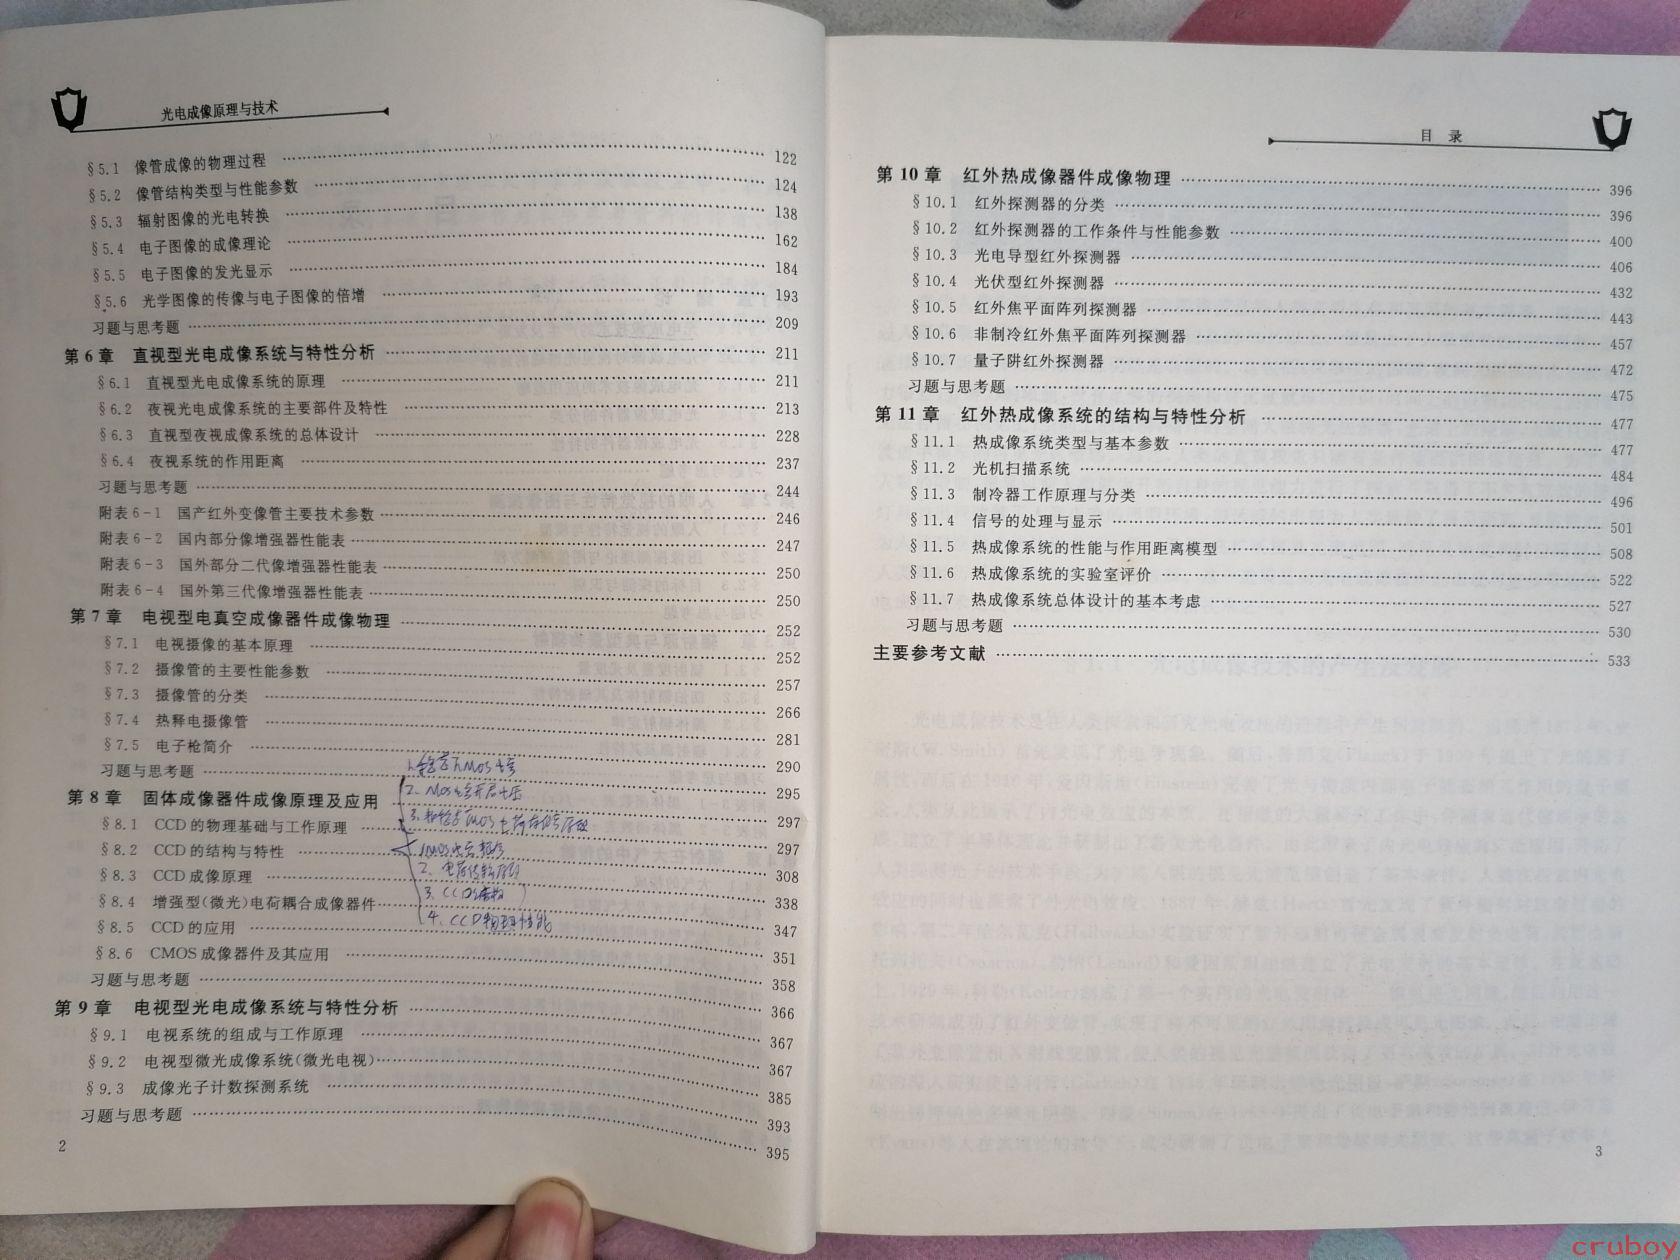 光电成像原理与技术
§5.1 像管成像的物理过程 …… 122
§5.2 像管结构类型与性能参数 …… 124
§5.3 辐射图像的光电转换 …… 138
§5.4 电子图像的成像理论 …… 162
§5.5 电子图像的发光显示 …… 184
§5.6 光学图像的传像与电子图像的倍增 …… 193
习题与思考题 …… 209
第6章 直视型光电成像系统与特性分析 …… 211
§6.1 直视型光电成像系统的原理 …… 211
§6.2 夜视光电成像系统的主要部件及特性 …… 213
§6.3 直视型夜视成像系统的总体设计 …… 228
§6.4 夜视系统的作用距离 …… 237
习题与思考题 …… 244
附表6-1 国产红外变像管主要技术参数 …… 246
附表6-2 国内部分像增强器性能表 …… 247
附表6-3 国外部分二代像增强器性能表 …… 250
附表6-4 国外第三代像增强器性能表 …… 250
第7章 电视型电真空成像器件成像物理 …… 252
§7.1 电视摄像的基本原理 …… 252
§7.2 摄像管的主要性能参数 …… 257
§7.3 摄像管的分类 …… 266
§7.4 热释电摄像管 …… 281
§7.5 电子枪简介 …… 290
习题与思考题 …… 295
第8章 固体成像器件成像原理及应用 …… 297
§8.1 CCD的物理基础与工作原理 …… 297
§8.2 CCD的结构与特性 …… 308
§8.3 CCD成像原理 …… 338
§8.4 增强型(微光)电荷耦合成像器件 …… 347
§8.5 CCD的应用 …… 351
§8.6 CMOS成像器件及其应用 …… 358
习题与思考题 …… 366
第9章 电视型光电成像系统与特性分析 …… 367
§9.1 电视系统的组成与工作原理 …… 367
§9.2 电视型微光成像系统(微光电视) …… 385
§9.3 成像光子计数探测系统 …… 393
习题与思考题 …… 395
2
目 录
第10章 红外热成像器件成像物理 …… 396
§10.1 红外探测器的分类 …… 396
§10.2 红外探测器的工作条件与性能参数 …… 400
§10.3 光电导型红外探测器 …… 406
§10.4 光伏型红外探测器 …… 432
§10.5 红外焦平面阵列探测器 …… 443
§10.6 非制冷红外焦平面阵列探测器 …… 457
§10.7 量子阱红外探测器 …… 472
习题与思考题 …… 475
第11章 红外热成像系统的结构与特性分析 …… 477
§11.1 热成像系统类型与基本参数 …… 477
§11.2 光机扫描系统 …… 484
§11.3 制冷器工作原理与分类 …… 496
§11.4 信号的处理与显示 …… 501
§11.5 热成像系统的性能与作用距离模型 …… 508
§11.6 热成像系统的实验室评价 …… 522
§11.7 热成像系统总体设计的基本考虑 …… 527
习题与思考题 …… 530
主要参考文献 …… 533
3
cruboy